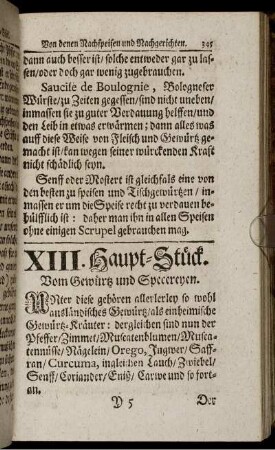 Von denen Nachspeisen und Nachgerichten. 395
dann auch besser ist/ solche entweder gar zu las-
sen/ oder doch gar wenig zugebrauchen.
Saucise de Boulognie, Bologneser
Würste/ zu Zeiten gegessen/ sind nicht uneben/
inmassen sie zu guter Verdauung helffen/ und
den Leib in etwas erwärmen; dann alles was
auff diese Weise von Fleisch und Gewürtz ge-
macht ist/ kan wegen seiner würckenden Krafft
nicht schädlich seyn.
Senff oder Mostert ist gleichfals eine von
den besten zu speisen und Tischgewürtzen / in-
massen er um die Speise recht zu verdauen be-
hülfflich ist: daher man ihn in allen Speisen
ohne einigen Scrupel gebrauchen mag.
XIII. Haupt-Stück.
Vom Gewürtz und Specereyen.
UNter diese gehören allerlerley so wohl
ausländisches Gewürtz/ als einheimische
Gewürtz-Kräuter: dergleichen sind nun der
Pfeffer/ Zimmet/ Muscatenblumen/ Musca-
tennüsse/ Nägelein/ Orego, Ingwer/ Saff-
ran/ Curcuma, ingleichen Lauch/ Zwiebel/
Senff/ Coriander/ Eniß/ Carwe und so fort-
an.
D 5 Der